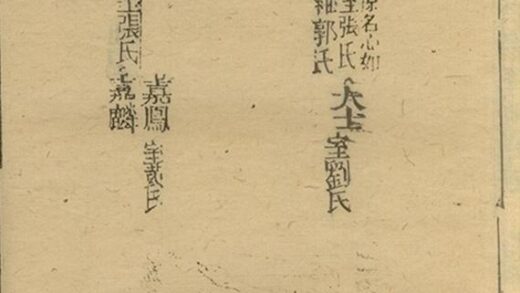 原名心如
室張氏
繼郭氏
大士 室劉氏
室張氏
嘉鳳 室戴氏
嘉麟